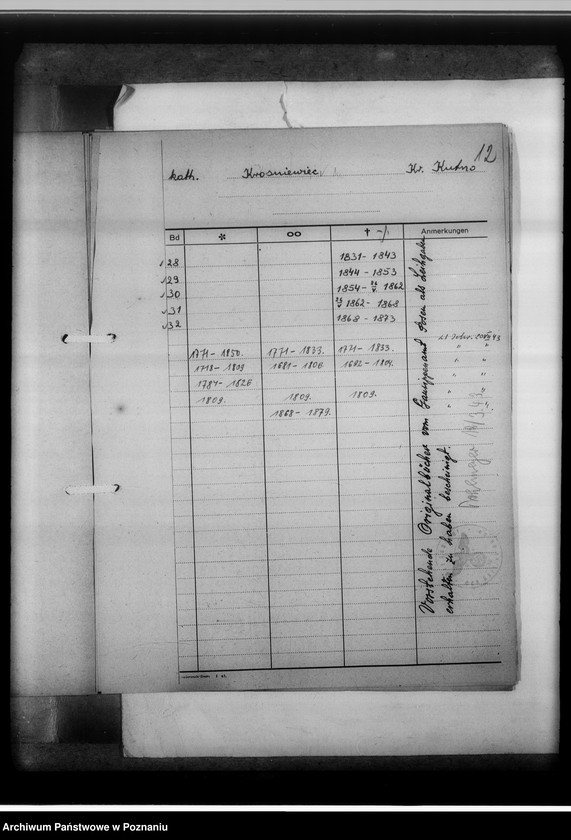 12
kath. Krosniewiec Kr. Kutno
Bd * oo † Anmerkungen
28 1831 - 1843
29 1844 - 1853
30 1854 - 1862
31 1862 - 1868
32 1868 - 1873
1771 - 1850. 1771 - 1833. 1771 - 1833.
1718 - 1809 1681 - 1806 1692 - 1804.
1784 - 1826
1809. 1809. 1809.
1868 - 1879.
Vorstehende Originalbücher vom Gausippenamt Posen als Leihgabe
erhalten zu haben bescheinigt.
Archiwum Państwowe w Poznaniu